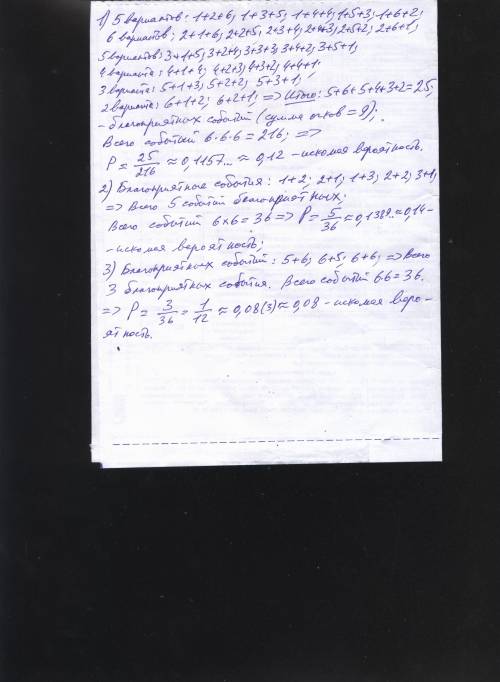 1) 5 вариантов: 1+2+6; 1+3+5; 1+4+4; 1+5+3; 1+6+2;
6 вариантов: 2+1+6; 2+2+5; 2+3+4; 2+4+3; 2+5+2; 2+6+1;
5 вариантов: 3+1+5; 3+2+4; 3+3+3; 3+4+2; 3+5+1;
4 варианта: 4+1+4; 4+2+3; 4+3+2; 4+4+1;
3 варианта: 5+1+3; 5+2+2; 5+3+1;
2 варианта: 6+1+2; 6+2+1; => Итого: 5+6+5+4+3+2=25;
- благоприятных событий (сумма очков = 9);
Всего событий 6·6·6=216; =>
P = 25/216 ≈ 0,1157... ≈ 0,12 - искомая вероятность.
2) Благоприятные события: 1+2; 2+1; 1+3; 2+2; 3+1;
=> Всего 5 событий благоприятных;
Всего событий 6×6=36 => P = 5/36 ≈ 0,1389..≈0,14-
- искомая вероятность;
3) Благоприятных событий: 5+6; 6+5; 6+6; => Всего
3 благоприятных события. Всего событий 6·6=36.
=> P = 3/36 = 1/12 ≈ 0,08(3) ≈ 0,08 - искомая веро-
ятность.